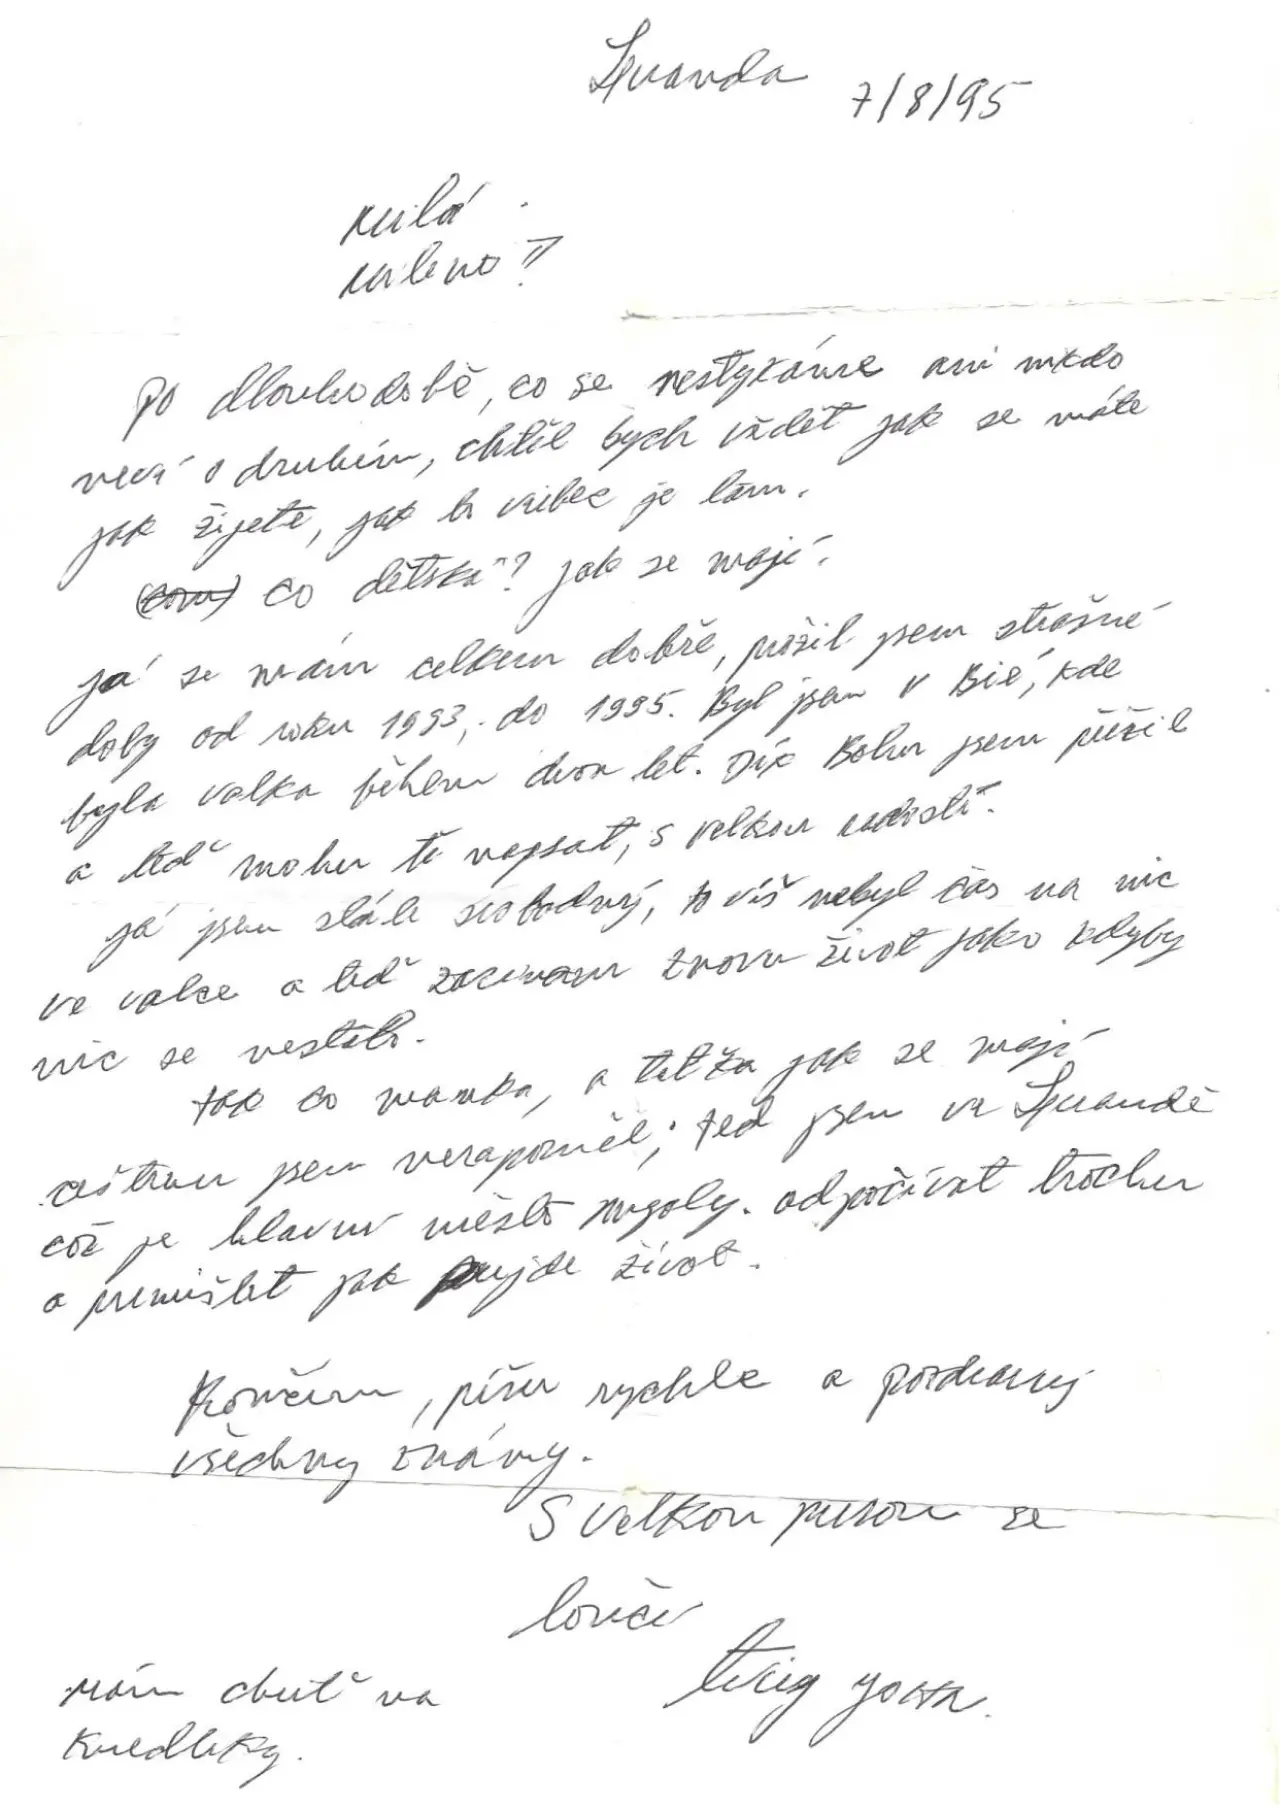 Luanda 7/8/95
Milá
Mileno!!
Po dlouho době, co se nestykáme ani nikdo
neví o druhém, chtěl bych vědět jak se máte
jak žijete, jak to vůbec je tam.
co dětska? jak se mají.
Já se mám celkem dobře, prožil jsem strašné
doby od roku 1993, do 1995. Byl jsem v Bié, kde
byla valka během dvou let. Dík Bohu jsem přežil
a teď mohu ti napsat, s velkou radostí.
já jsem stále svobodný, to víš nebyl čas na nic
ve valce a teď zacinam znovu život jako kdyby
nic se nestalo.
tak co mamka, a tet'ka jak se mají
češtinu jsem nezapomněl; teď jsem v Luandě
což je hlavní město Angoly. odpočívat trochu
a premišlet jak pujde život.
Končím, píšu rychle a pozdravuj
všechny známy.
S velkou pusou se
loučí
mám chuť na
knedliky.